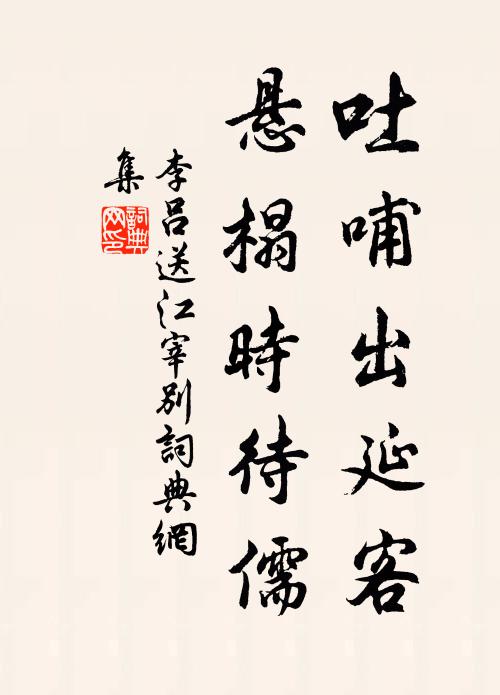 吐哺出延客
悬榻時待儒
李吕送江宰别詞典網
集
詞典網印